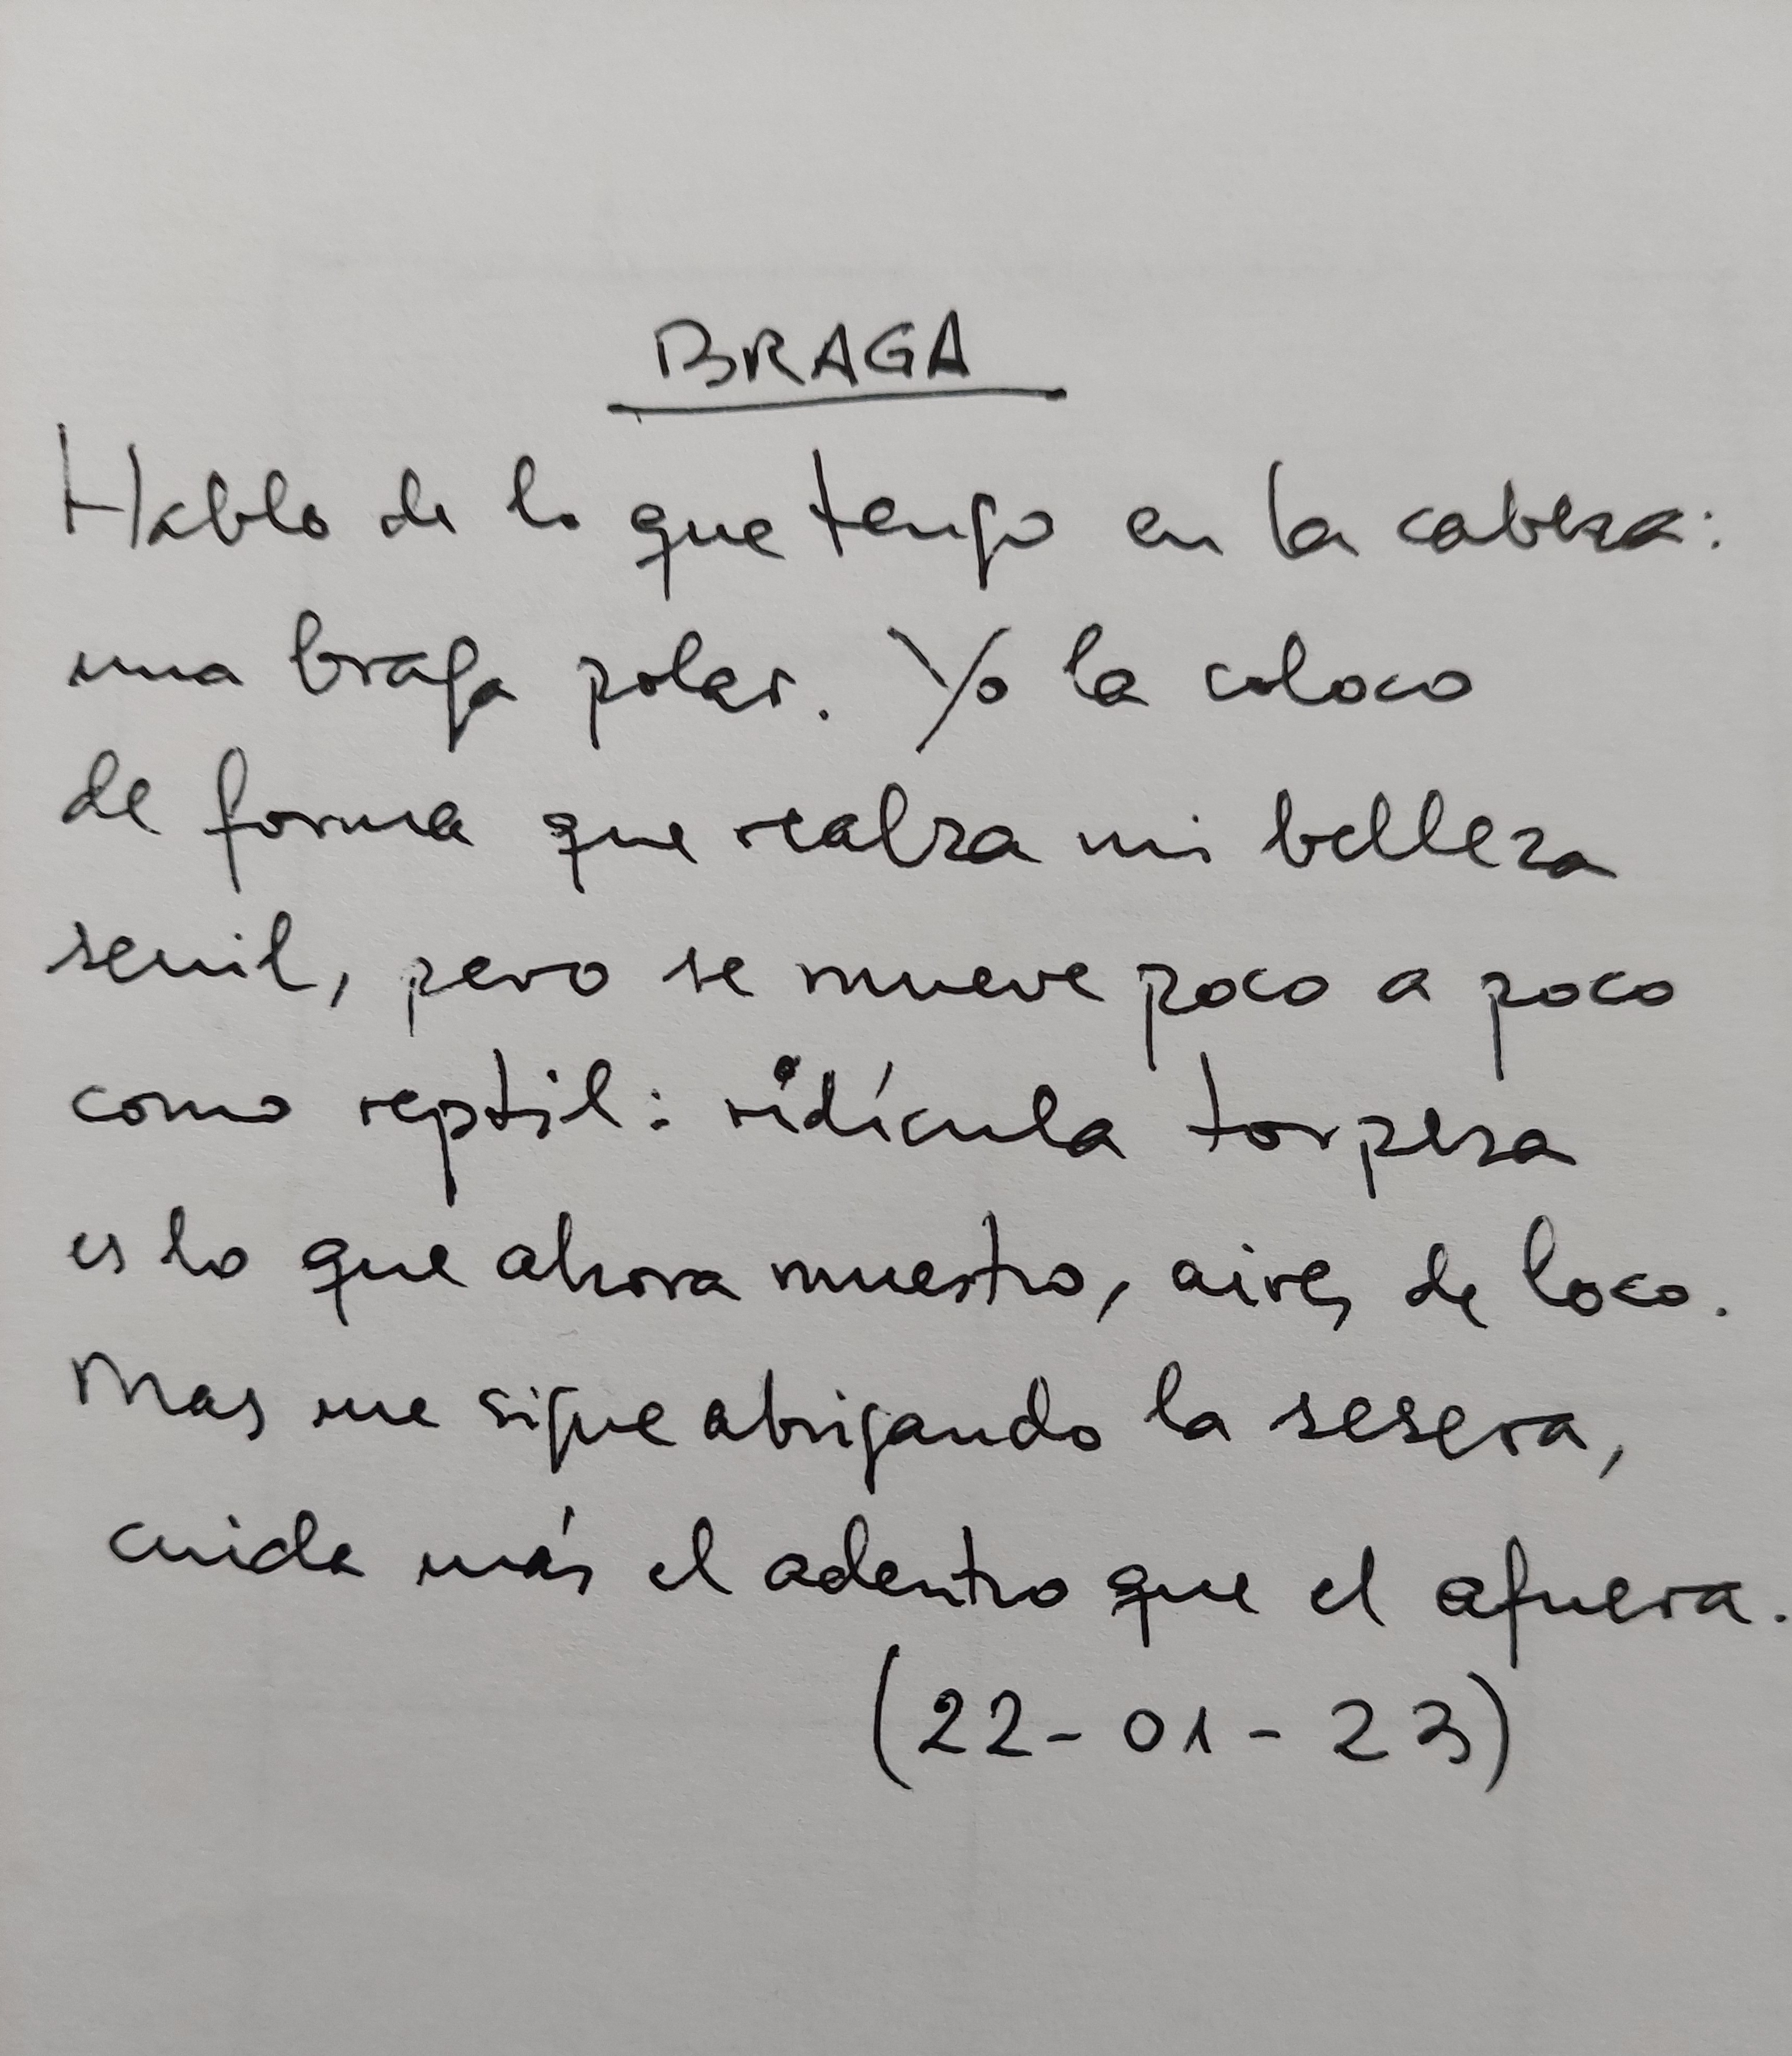 BRAGA
Hablo de lo que tengo en la cabeza:
una braga polar. Yo la coloco
de forma que realza mi belleza
senil, pero se mueve poco a poco
como reptil: ridícula torpeza
es lo que ahora muestro, aires de loco.
Mas me sigue abrigando la sesera,
cuida más el adentro que el afuera.
(22-01-23)